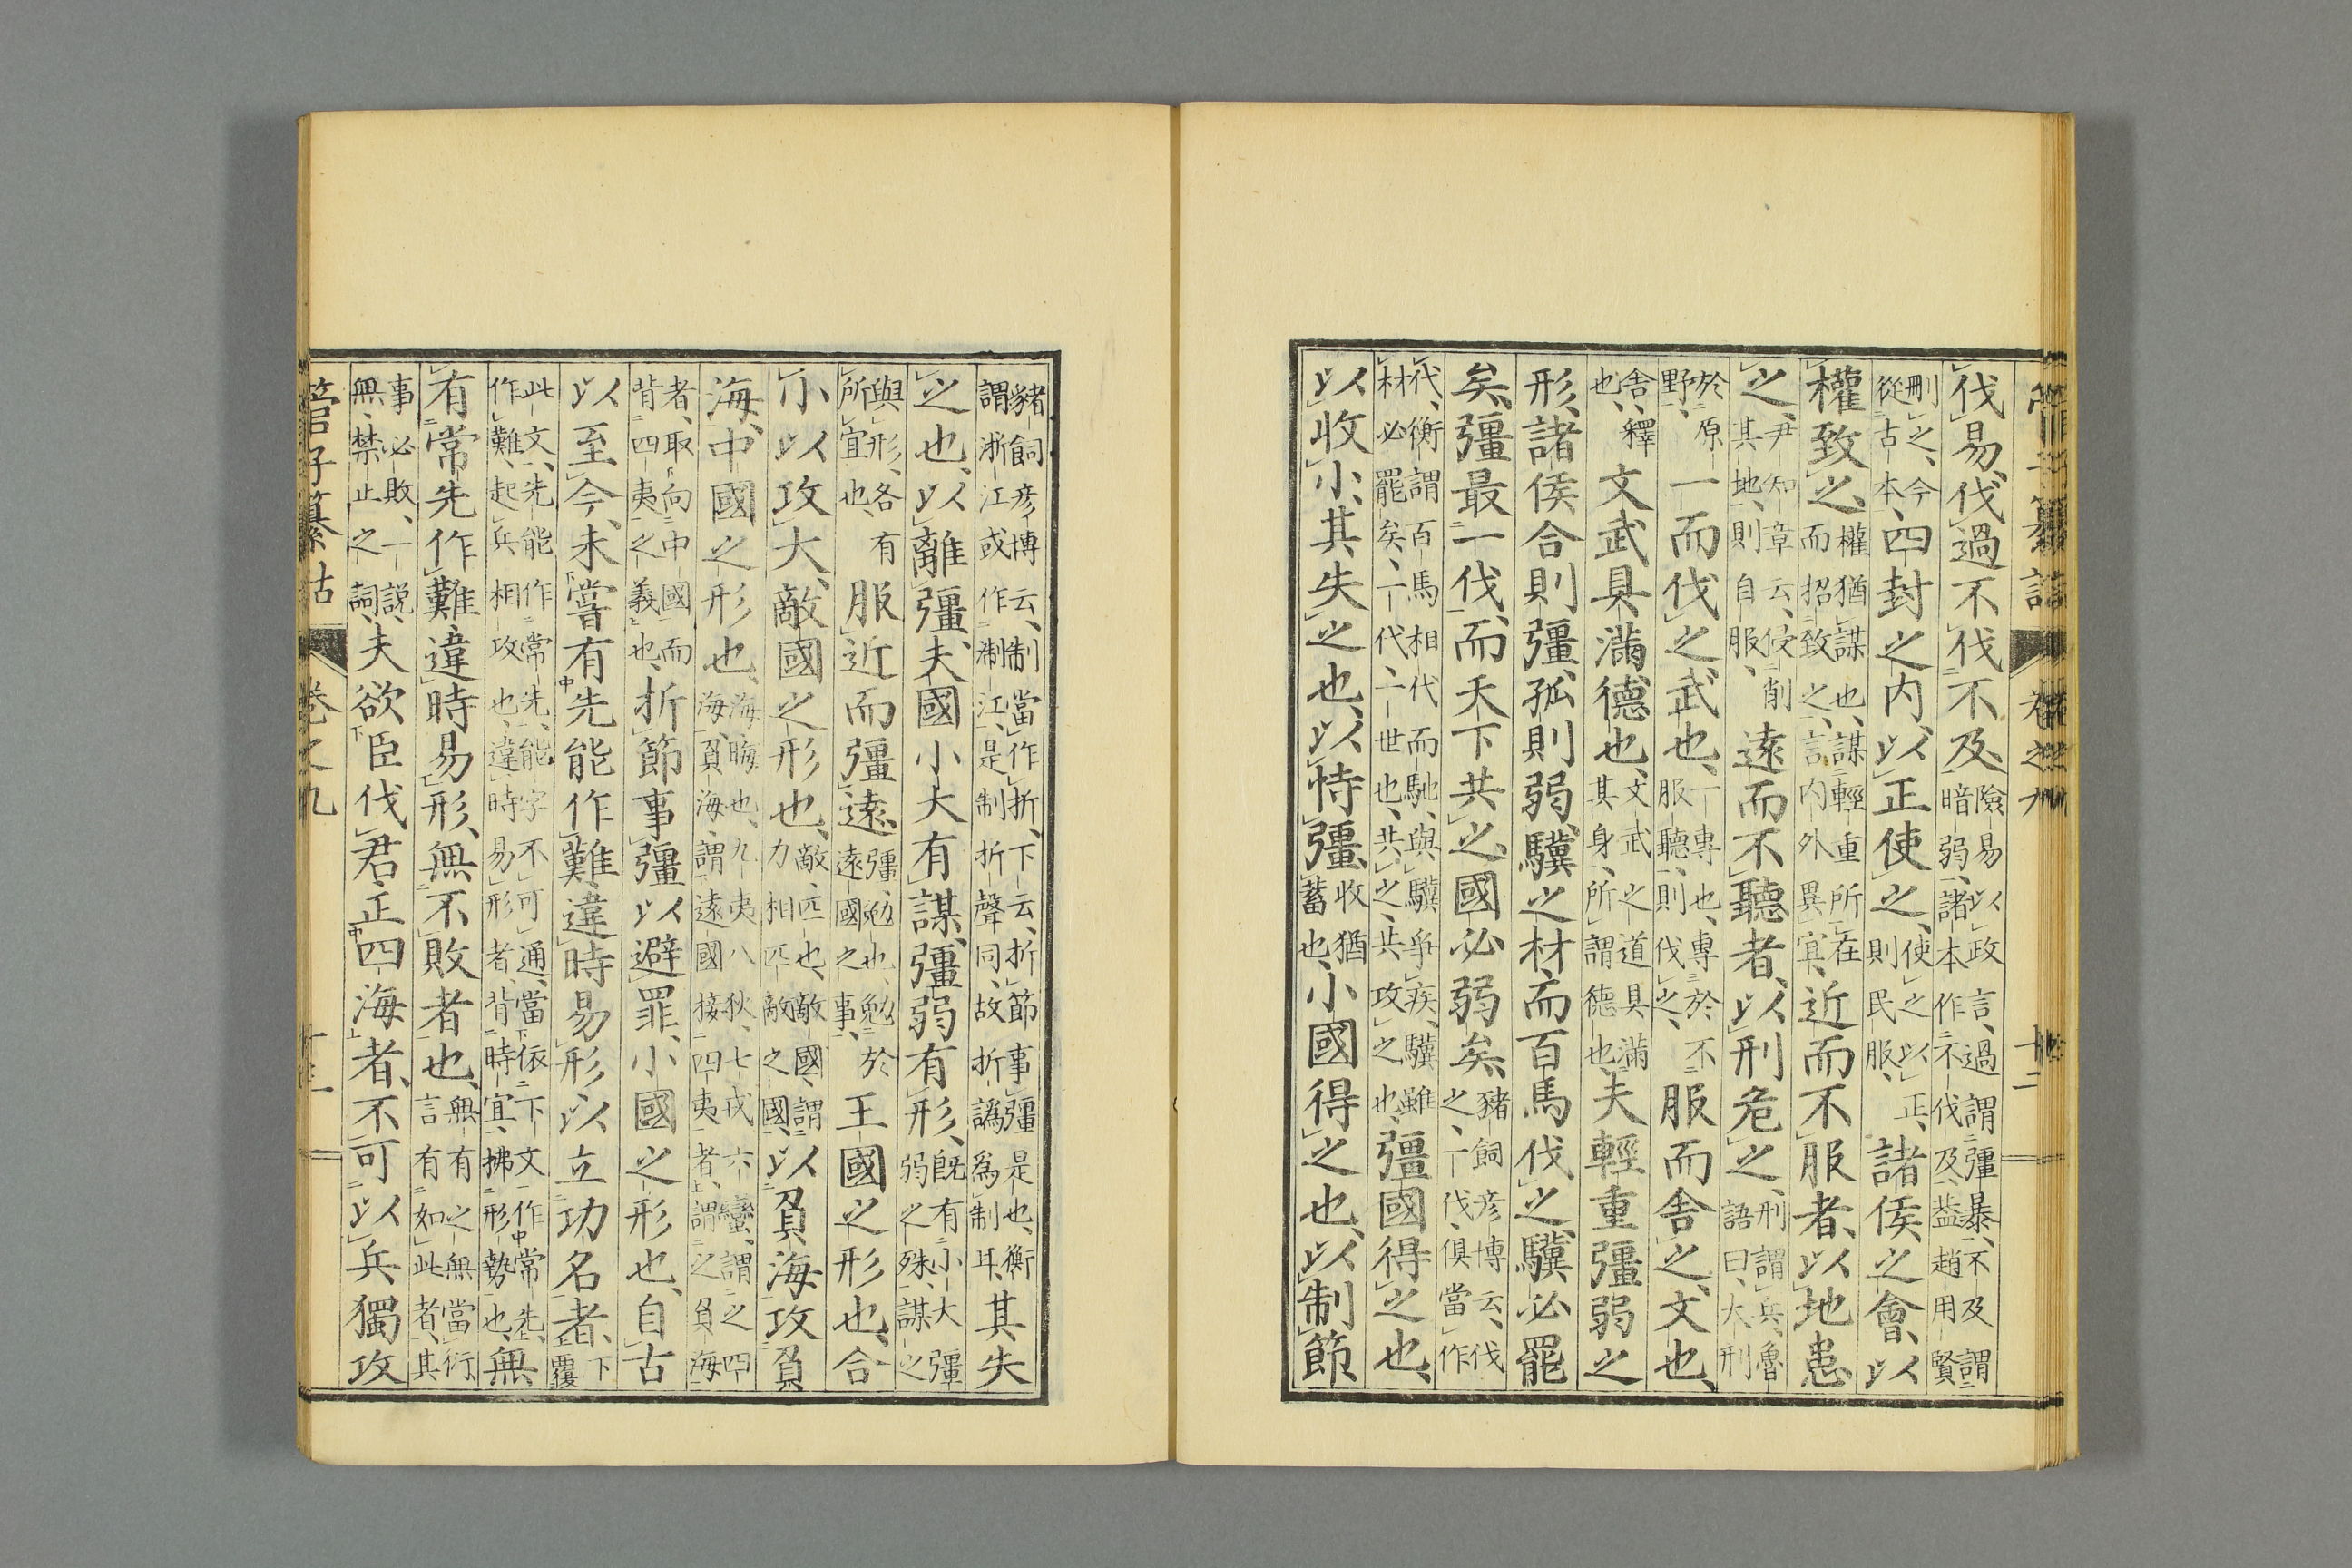 管子纂詁 卷之九 十二
伐易、伐過不伐不及、險易以政言、過謂彊暴、不及謂暗弱、諸本作不伐及、蓋趙用賢
刪之、今從古本、四封之内、以正使之、使之以正、則民服、諸侯之會、以
權致之、權猶謀也、謀輕重所在而招致之、言内外異宜、近而不服者、以地患
之、尹知章云、侵削其地、則自服、遠而不聽者、以刑危之、刑謂兵、魯語曰、大刑
於原野、一而伐之、武也、一專也、專於不服聽、則伐之、服而舍之、文也、
舍、釋也、文武具滿、德也、文武之道具滿其身、所謂德也、夫輕重彊弱之
形、諸侯合則彊、孤則弱、驥之材、而百馬伐之、驥必罷
矣、彊最一伐、而天下共之、國必弱矣、豬飼彦博云、伐之、一伐、俱當作
代、衡謂百馬相代而馳、與驥爭疾、驥雖材必罷矣、一代、一世也、共之、共攻之也、彊國得之也、
以收小、其失之也、以恃彊、收猶蓄也、小國得之也、以制節
豬飼彦博云、制當作折、下云、折節事彊是也、衡謂浙江或作淛江、是制折聲同、故折譌爲制耳、其失
之也、以離彊、夫國小大有謀、彊弱有形、既有小大彊弱之殊、謀之
與形、各有所宜也、服近而彊遠、彊勉也、勉於遠國之事、王國之形也、合
小以攻大、敵國之形也、敵匹也、敵國、謂力相匹敵之國、以負海攻負
海、中國之形也、海、晦也、九夷八狄七戎六蠻、謂之四海、負海、謂遠國接四夷者、謂之負海
者、取向中國而背四夷之義也、折節事彊以避罪、小國之形也、自古
以至今、未嘗有先能作難、違時易形以立功名者、下覆
此文、先能作常先、能字不可通、當依下文作常先、作難、起兵相攻也、違時易形者、背時宜、拂形勢也、無
有常先作難、違時易形、無不敗者也、無有之無當衍、言有如此者、其
事必敗、一説、無、禁止之詞、夫欲臣伐君、正四海者、不可以兵獨攻
管子纂詁 卷之九